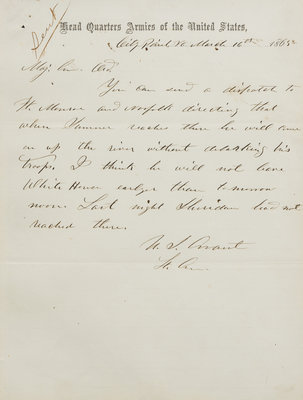 Sent
Head Quarters Armies of the United States,
City Point Va March 16th 1865
Maj. Gn. Ord
You can send a dispatch to
Ft. Monroe and Norfolk directing that
when reaches there he will come
on up the river without debarking his
troops. I think he will not leave
White House earlyer than to-morrow
noon. Last night Sheridan had not
reached there.
U. S. Grant
Lt. Gn.